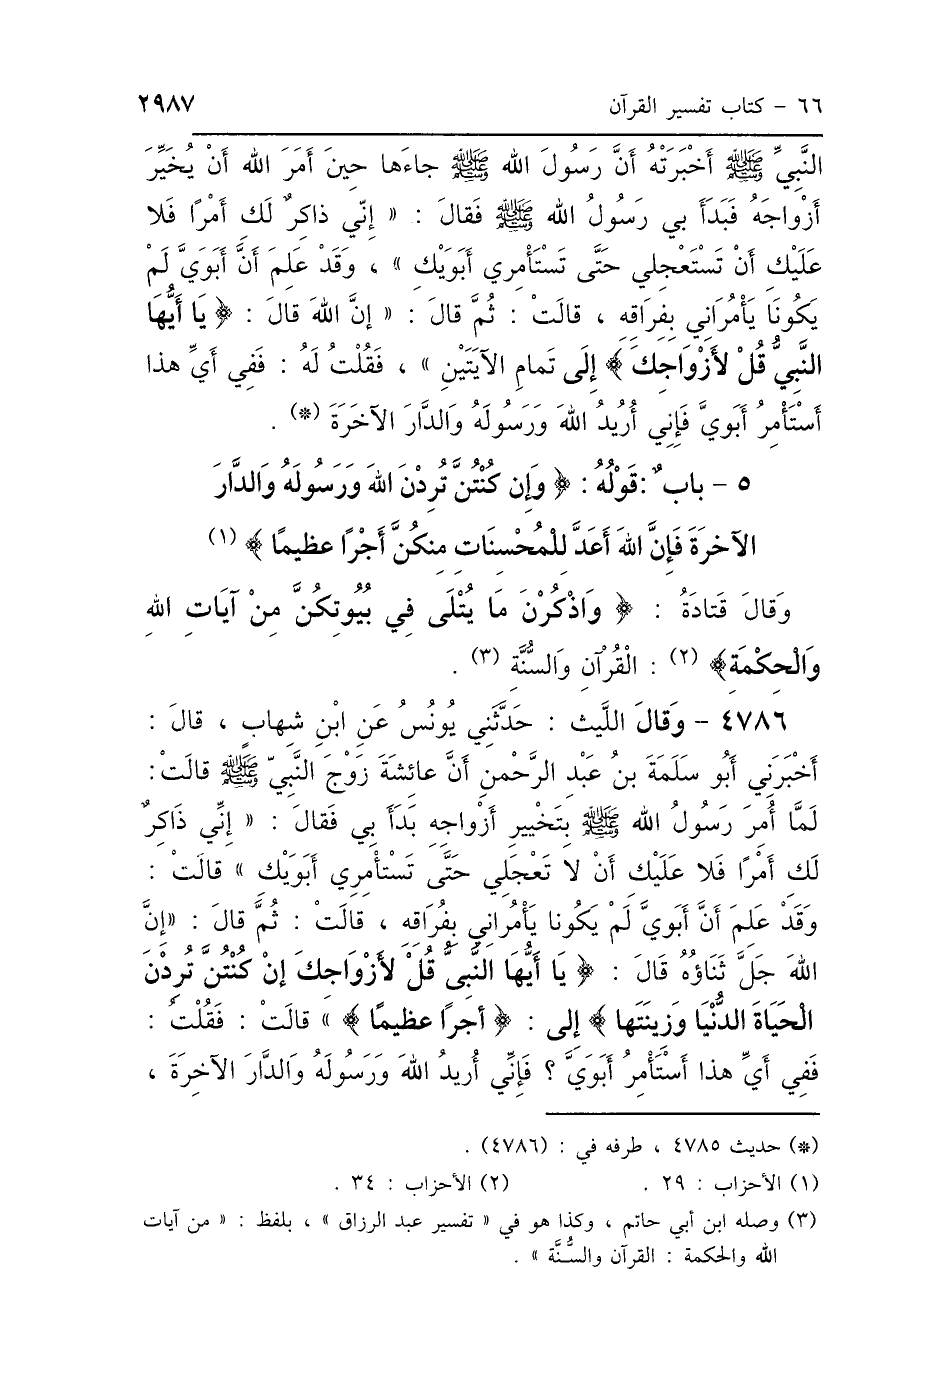 ٦٦ - كتاب تفسير القرآن ٢٩٨٧
النَّبِيِّ ﷺ أَخْبَرَتْهُ أَنَّ رَسُولَ الله ﷺ جاءَها حِينَ أَمَرَ الله أَنْ يُخَيِّرَ
أَزْواجَهُ فَبَدَأَ بي رَسُولُ الله ﷺ فَقالَ : « إِنّي ذاكِرٌ لَكِ أَمْرًا فَلا
عَلَيْكِ أَنْ تَسْتَعْجِلي حَتَّى تَسْتَأْمِري أَبَوَيْكِ » ، وَقَدْ عَلِمَ أَنَّ أَبَوَيَّ لَمْ
يَكُونَا يَأْمُرَانِي بِفِراقِهِ ، قالَتْ : ثُمَّ قالَ : « إنَّ اللهَ قالَ : ﴿ يا أَيُّها
النَّبِيُّ قُلْ لأَزْوَاجِكَ ﴾ إلَى تَمامِ الآيَتَيْنِ » ، فَقُلْتُ لَهُ : فَفِي أَيِّ هذا
أَسْتَأْمِرُ أَبَوِيَّ فَإِنِي أُرِيدُ اللهَ وَرَسُولَهُ وَالدَّارَ الآخَرَةَ (*) .
٥ - باب ٌ :قَوْلُهُ : ﴿ وَإِن كُنْتُنَّ تُرِدْنَ اللهَ وَرَسُولَهُ وَالدَّارَ
الآخرَةَ فَإنَّ اللهَ أَعَدَّ لِلْمُحْسِنَاتِ مِنكُنَّ أَجْرًا عظيمًا ﴾ (١)
وَقالَ قَتادَةُ : ﴿ وَاذْكُرْنَ مَا يُتْلَى فِي بُيُوتِكُنَّ مِنْ آيَاتِ الله
وَالْحِكْمَةِ﴾ (٢) : الْقُرْآنِ وَالسُّنَّةِ (٣) .
٤٧٨٦ - وَقالَ اللَّيث : حَدَّثَنِي يُونُسُ عَنِ ابْنِ شِهابٍ ، قالَ :
أَخْبَرَنِي أَبُو سَلَمَةَ بنُ عَبْدِ الرَّحْمنِ أَنَّ عائشَةَ زَوْجَ النَّبِيّ ﷺ قالَتْ:
لَمَّا أُمِرَ رَسُولُ الله ﷺ بِتَخْيِيرِ أَزْواجِهِ بَدَأَ بِي فَقالَ : « إِنِّي ذَاكِرٌ
لَكِ أَمْرًا فَلا عَلَيْكِ أَنْ لا تَعْجَلِي حَتَّى تَسْتأْمِرِي أَبَوَيْكِ » قالَتْ :
وَقَدْ عَلِمَ أَنَّ أَبَويَّ لَمْ يَكُونا يَأْمُراني بِفُرَاقِهِ ، قالَتْ : ثُمَّ قالَ : «إنَّ
اللهَ جَلَّ ثَنَاؤُهُ قَالَ : ﴿ يَا أَيُّهَا النَّبِيُّ قُلْ لأَزْوَاجِكَ إنْ كُنْتُنَّ تُرِدْنَ
الْحَيَاةَ الدُّنْيَا وَزِينَتَها ﴾ إلى : ﴿ أجرًا عظيمًا ﴾ » قالَتْ : فَقُلْتُ :
فَفِي أَيِّ هذا أَسْتَأْمِرُ أَبَوَيَّ ؟ فَإنِّي أُرِيدُ اللهَ وَرَسُولَهُ وَالدَّارَ الآخِرَةَ ،
(*) حديث ٤٧٨٥ ، طرفه في : (٤٧٨٦) .
(١) الأحزاب : ٢٩ . (٢) الأحزاب : ٣٤ .
(٣) وصله ابن أبي حاتم ، وكذا هو في « تفسير عبد الرزاق » ، بلفظ : « من آيات
الله والحكمة : القرآن والسُّنَّة » .